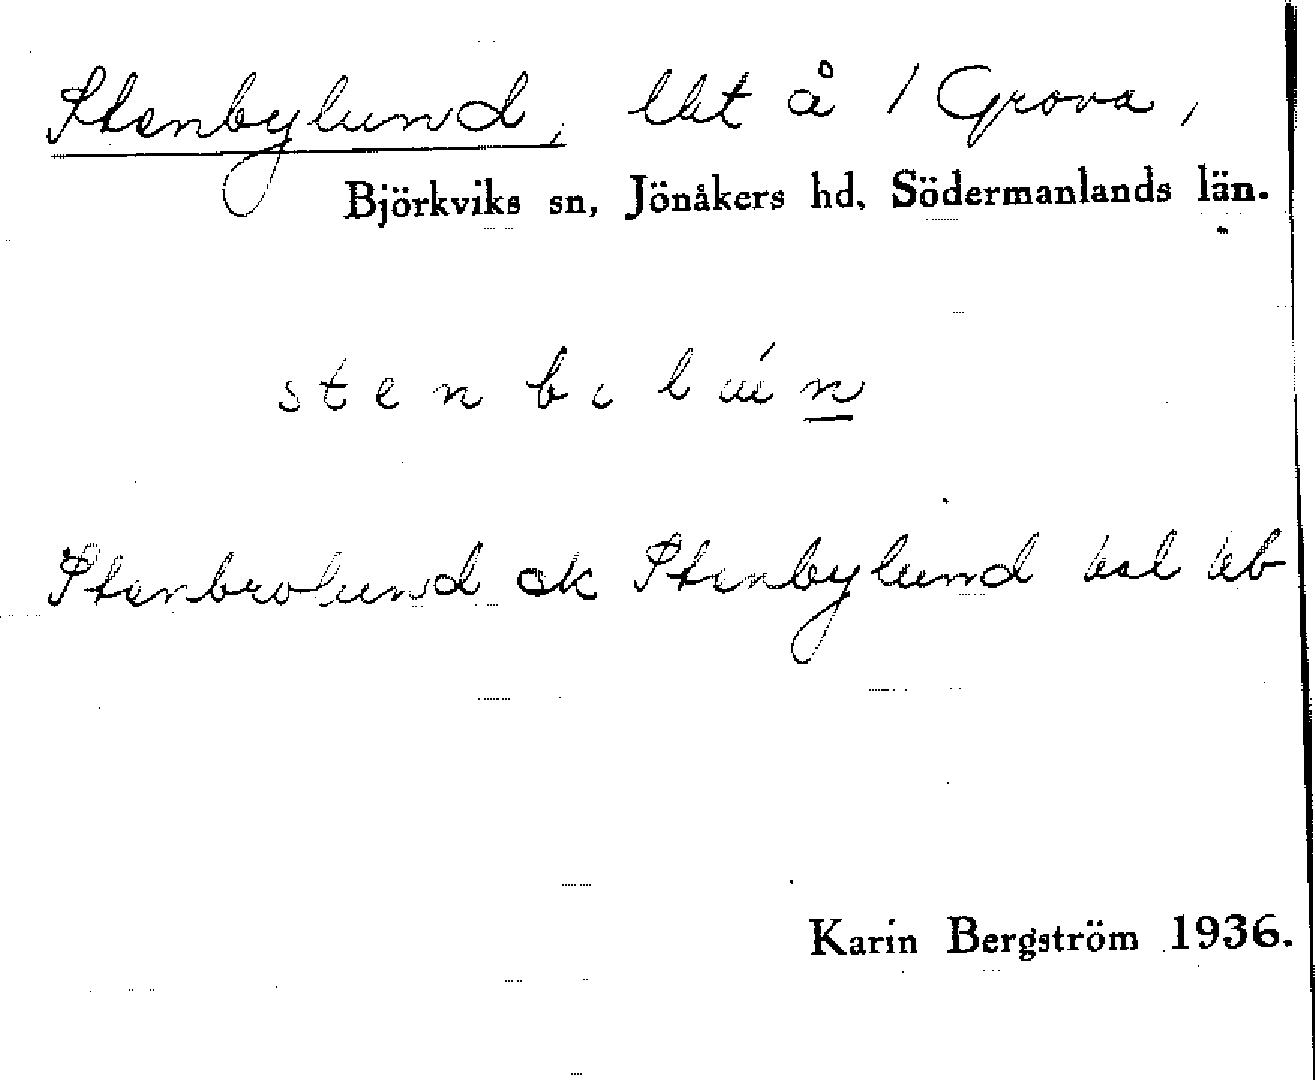 Stenbylund, lht å 1 Grova,
Björkviks sn, Jönåkers hd, Södermanlands län.
stenbilún
Stenbrolund ok Stenbylund
Karin Bergström 1936.